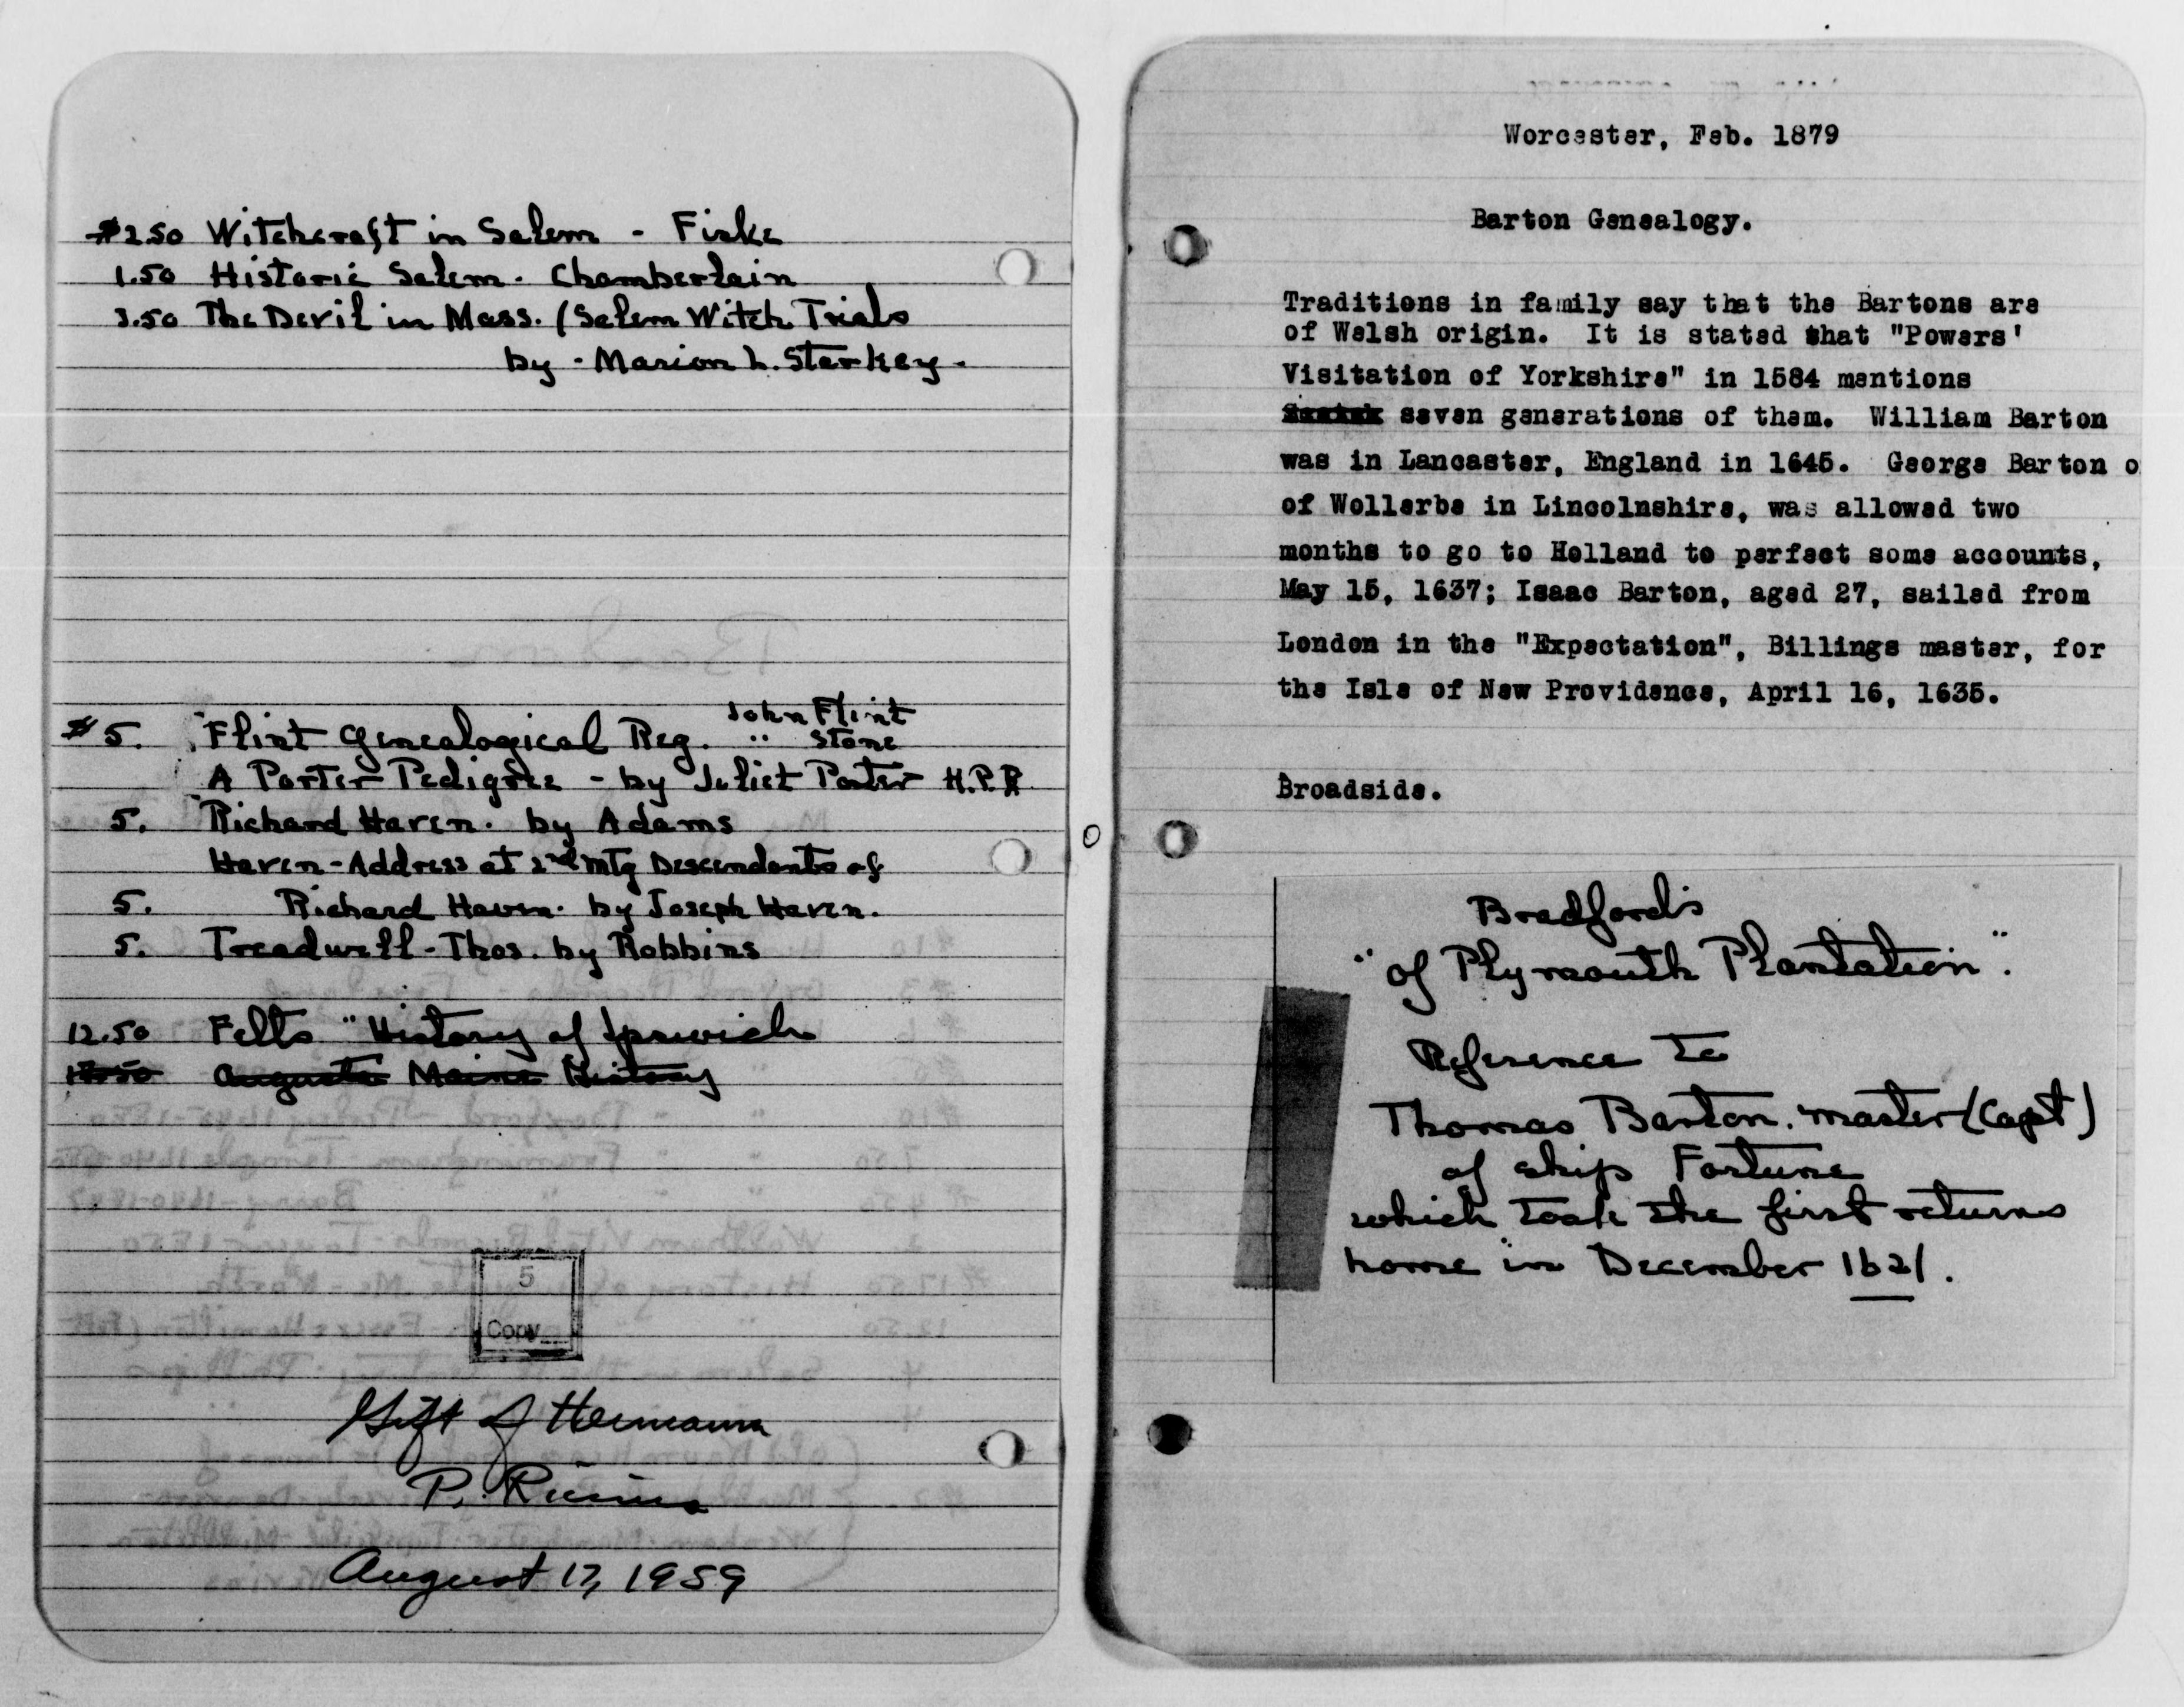 $2.50 Witchcraft in Salem - Fiske
1.50 Historic Salem - Chamberlain
3.50 The Devil in Mass. (Salem Witch Trials
by - Marion L. Starkey.
$5. "Flint Genealogical Reg. John Flint
" Stone
A Porter Pedigree - by Juliet Porter H.P.R.
5. Richard Haven. by Adams
Haven - Address at 2nd Mtg Descendants of
5. Richard Haven. by Joseph Haven.
5. Treadwell - Thos. by Robbins
12.50 Felts "History of Ipswich
Augusta Maine History
5
Copy
Gift of Hermann
P.
August 17, 1959
Worcester, Feb. 1879
Barton Genealogy.
Traditions in family say that the Bartons are
of Welsh origin. It is stated that "Powers'
Visitation of Yorkshire" in 1584 mentions
seven generations of them. William Barton
was in Lancaster, England in 1645. George Barton o
of Wollerbe in Lincolnshire, was allowed two
months to go to Holland to perfect some accounts,
May 15, 1637; Isaac Barton, aged 27, sailed from
London in the "Expectation", Billings master, for
the Isle of New Providence, April 16, 1635.
Broadside.
Bradford's
"of Plymouth Plantation".
Reference to
Thomas Barton. master (Capt)
of ship Fortune
which took the first returns
home in December 1621.